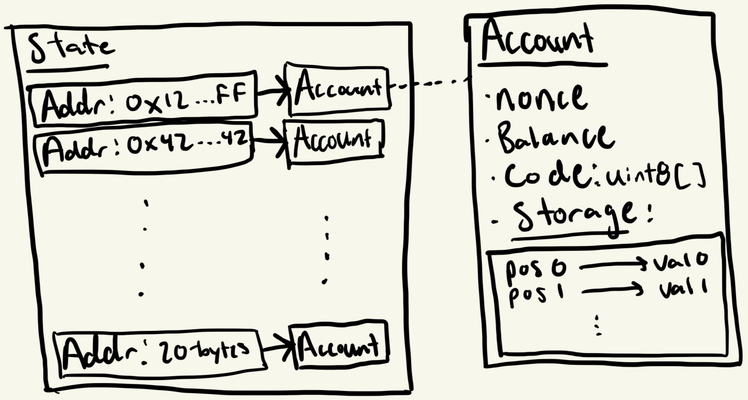 State
Addr: 0x12...FF
Account
Addr: 0x42...42
Account
Addr: 20-bytes
Account
Account
·nonce
·Balance
·Code:uint8[]
- Storage:
pos 0 val 0
pos 1 val 1